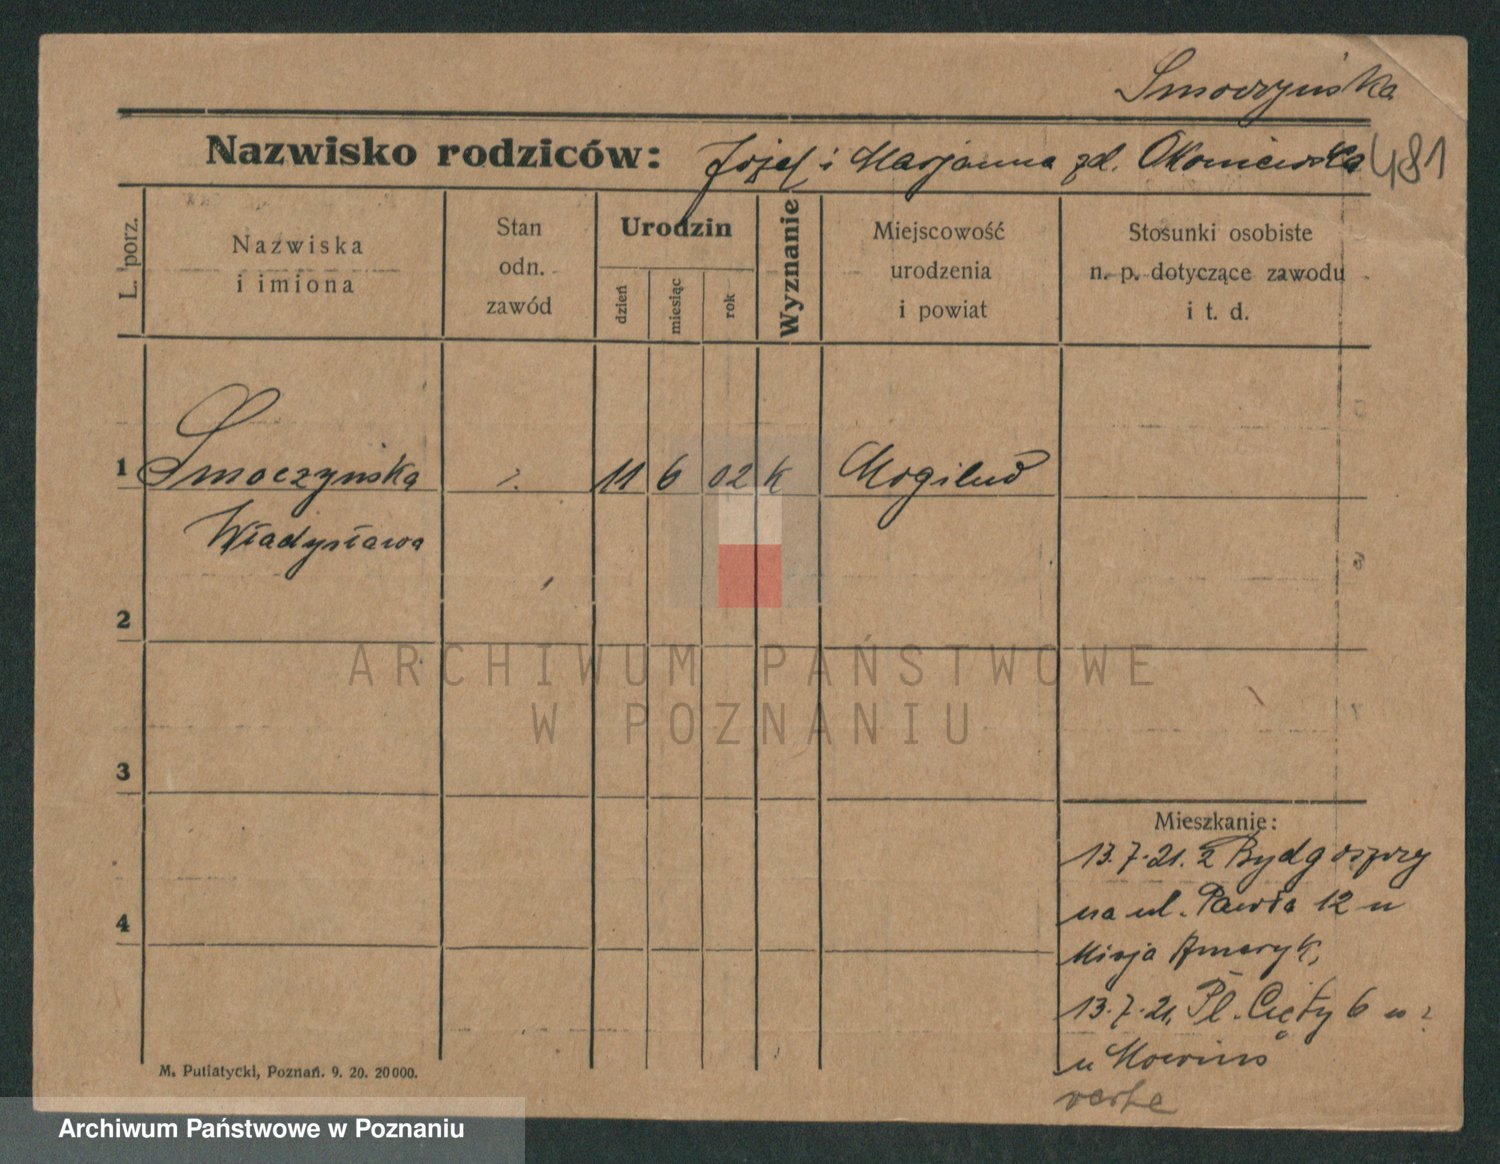 Smoczyńska
Nazwisko rodziców: Józef i Marjanna zd. Okoniewska 481
L. porz.
Nazwiska
i imiona
Stan
odn.
zawód
Urodzin
dzień
miesiąc
rok
Wyznanie
Miejscowość
urodzenia
i powiat
Stosunki osobiste
n. p. dotyczące zawodu
i t. d.
1 Smoczyńska 11 6 02 k Mogilno
Władysława
2
3
4
Mieszkanie:
13.7.21. z Bydgoszczy
na ul. Pawła 12 u
Misja Ameryk,
13.7.21. Pl. 6
u
verte
M. Putiatycki, Poznań. 9. 20. 20000.
ARCHIWUM PAŃSTWOWE
W POZNANIU
Archiwum Państwowe w Poznaniu